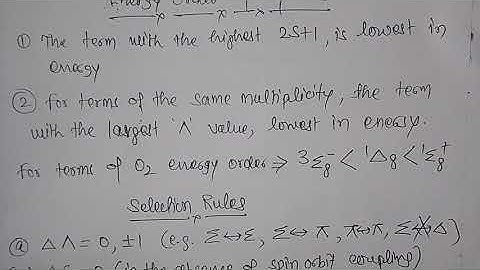 Energy Order
① The term with the highest 2S+1, is lowest in
energy
② for terms of the same multiplicity, the term
with the largest 'Λ' value, lowest in energy.
for terms of O₂ energy order ⇒ 3Σg⁻ < ¹Δg < ¹Σg⁺
Selection Rules
ⓐ ΔΛ = 0, ±1 (e.g. Σ↔Σ, Σ↔π, π↔π, Σ↮Δ)
(in the absence of spin orbit coupling)